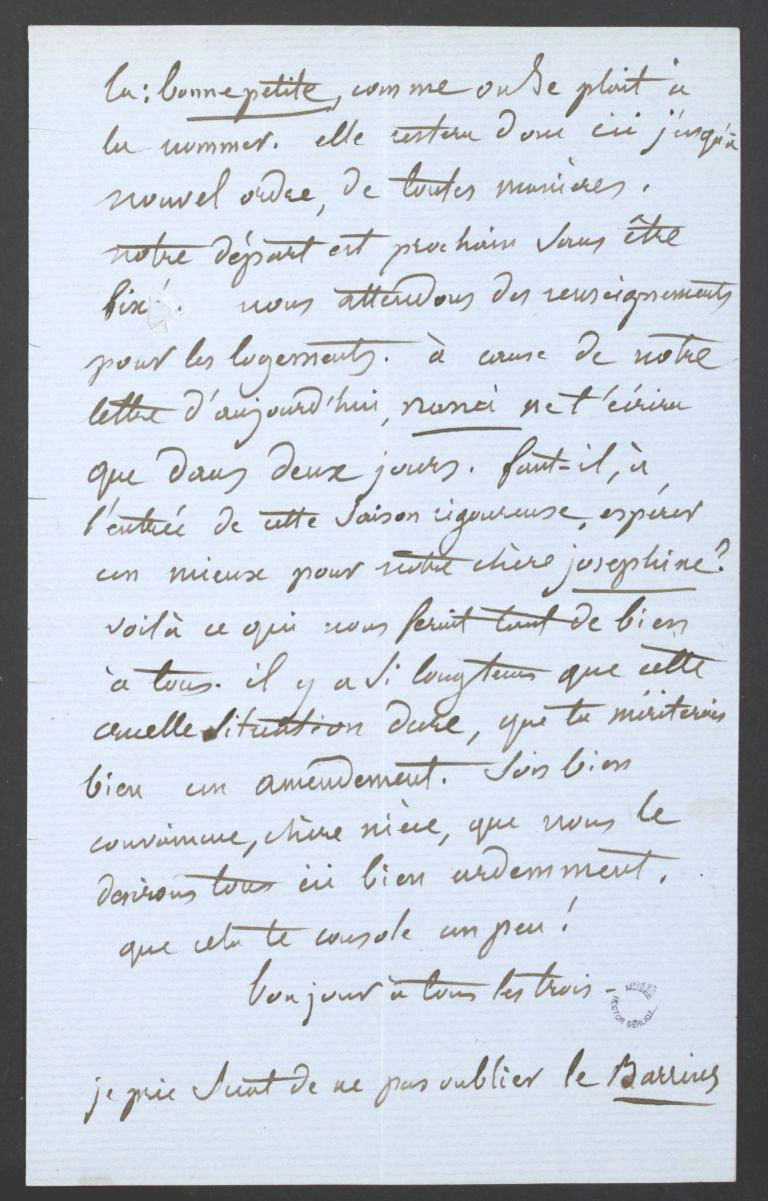 la: bonne petite, comme on se plait à
la nommer. elle restera donc ici j'usqu'à
nouvel ordre, de toutes manières.
notre départ est prochain sans être
fixé. nous attendons des renseignements
pour les logements. à cause de notre
lettre d'aujourd'hui, nanci ne t'écrira
que dans deux jours. faut-il, à
l'entrée de cette saison rigoureuse, espérer
un mieux pour notre chère josephine?
voilà ce qui nous ferait tant de bien
à tous. il y a si longtems que cette
cruelle situation dure, que tu mériterais
bien un amendement. Sois bien
convaincue, chère nièce, que nous le
desirons tous ici bien ardemment.
que cela te console un peu!
bonjour à tous les trois -
MUSÉE HECTOR BERLIOZ
je prie Suat de ne pas oublier le